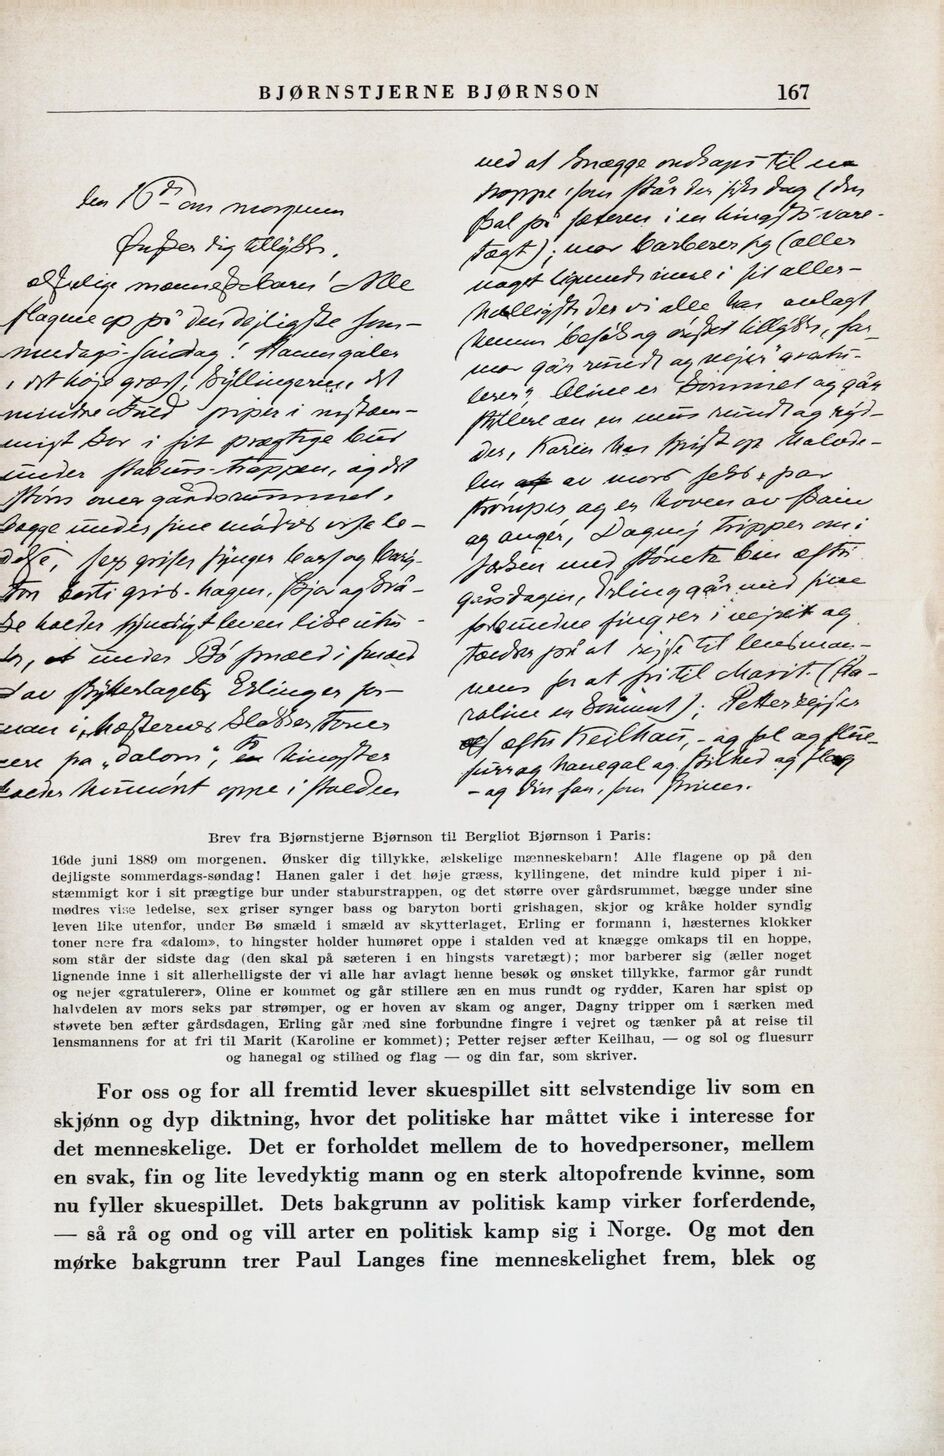 BJØRNSTJERNE BJØRNSON 167
den 16de om morgenen
Ønsker dig tillykke,
ælskelige mænneskebarn! Alle
flagene op på den dejligste som-
merdags-søndag! Hanen galer
i det høje græss, kyllingerne, det
mindre kuld piper i nistæm-
migt kor i sit prægtige bur
under staburs-trappen, og det
større over gårdsrummet,
bægge under sine mødres vise le-
delse, sex griser synger bass og bary-
ton borti gris-hagen, skjor og krå-
ke holder syndigt leven like uten-
for, under Bø smæld i smæld
av skytterlaget, Erling er for-
mann i, hæsternes klokker toner
nere fra „dalom“, to hingster
holder humøret oppe i stalden
ved at knægge omkaps til en
hoppe, som står der sidste dag (den
skal på sæteren i en hingsts vare-
tægt); mor barberer sig (æller
noget lignende inne i sit aller-
helligste der vi alle har avlagt
henne besøk og ønsket tillykke, far-
mor går rundt og nejer „gratu-
lerer“, Oline er kommet og går
stillere æn en mus rundt og ryd-
der, Karen har spist op halvde-
len av mors seks par
strømper og er hoven av skam
og anger, Dagny tripper om i
særken med støvete ben æfter
gårsdagen, Erling går med sine
forbundne fingrer i vejret og
tænker på at rejse til lensman-
nens for at fri til Marit. (Ka-
roline er kommet); Petter rejser
æfter Keilhau, – og sol og flue-
surr og hanegal og stilhed og flag
– og din far, som skriver.
Brev fra Bjørnstjerne Bjørnson til Bergliot Bjørnson i Paris:
16de juni 1889 om morgenen. Ønsker dig tillykke, ælskelige mænneskebarn! Alle flagene op på den
dejligste sommerdags-søndag! Hanen galer i det høje græss, kyllingene, det mindre kuld piper i ni-
stæmmigt kor i sit prægtige bur under staburstrappen, og det større over gårdsrummet, bægge under sine
mødres vise ledelse, sex griser synger bass og baryton borti grishagen, skjor og kråke holder syndig
leven like utenfor, under Bø smæld i smæld av skytterlaget, Erling er formann i, hæsternes klokker
toner nere fra «dalom», to hingster holder humøret oppe i stalden ved at knægge omkaps til en hoppe,
som står der sidste dag (den skal på sæteren i en hingsts varetægt); mor barberer sig (æller noget
lignende inne i sit allerhelligste der vi alle har avlagt henne besøk og ønsket tillykke, farmor går rundt
og nejer «gratulerer», Oline er kommet og går stillere æn en mus rundt og rydder, Karen har spist op
halvdelen av mors seks par strømper, og er hoven av skam og anger, Dagny tripper om i særken med
støvete ben æfter gårdsdagen, Erling går med sine forbundne fingre i vejret og tænker på at reise til
lensmannens for at fri til Marit (Karoline er kommet); Petter rejser æfter Keilhau, — og sol og fluesurr
og hanegal og stilhed og flag — og din far, som skriver.
For oss og for all fremtid lever skuespillet sitt selvstendige liv som en
skjønn og dyp diktning, hvor det politiske har måttet vike i interesse for
det menneskelige. Det er forholdet mellem de to hovedpersoner, mellem
en svak, fin og lite levedyktig mann og en sterk altopofrende kvinne, som
nu fyller skuespillet. Dets bakgrunn av politisk kamp virker forferdende,
— så rå og ond og vill arter en politisk kamp sig i Norge. Og mot den
mørke bakgrunn trer Paul Langes fine menneskelighet frem, blek og